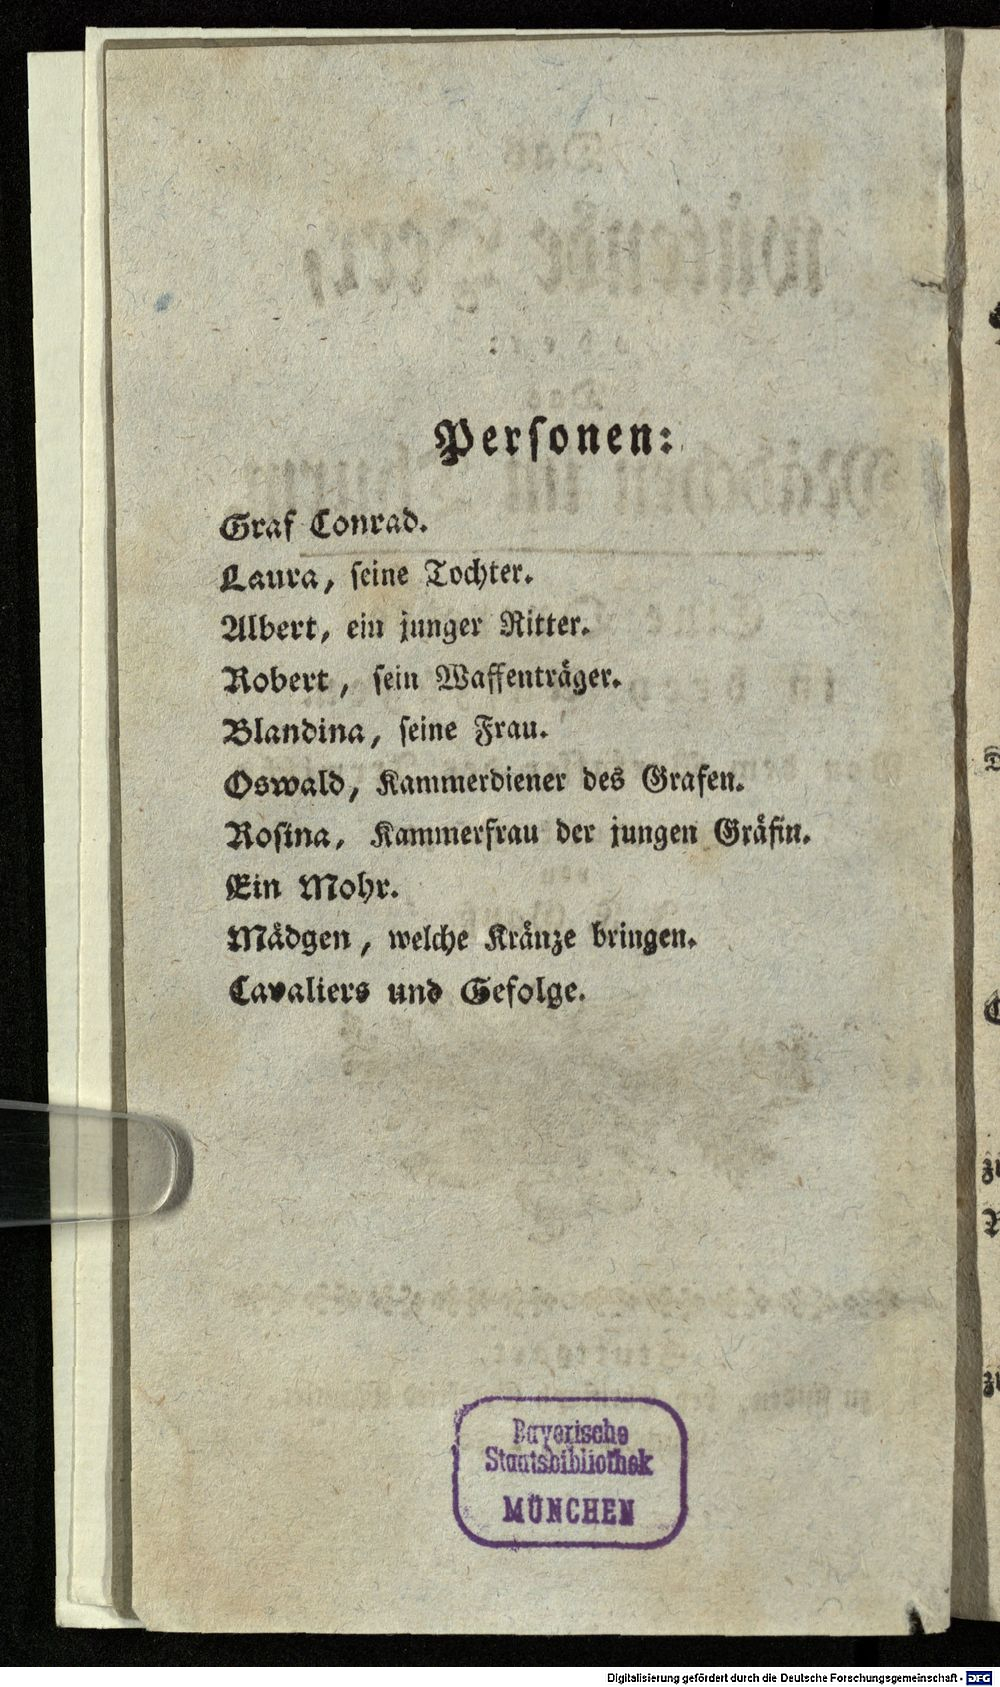 Personen:
Graf Conrad.
Laura, seine Tochter.
Albert, ein junger Ritter.
Robert, sein Waffenträger.
Blandina, seine Frau.
Oswald, Kammerdiener des Grafen.
Rosina, Kammerfrau der jungen Gräfin.
Ein Mohr.
Mädgen, welche Kränze bringen.
Cavaliers und Gefolge.
Bayerische
Staatsbibliothek
MÜNCHEN
Digitalisierung gefördert durch die Deutsche Forschungsgemeinschaft - DFG